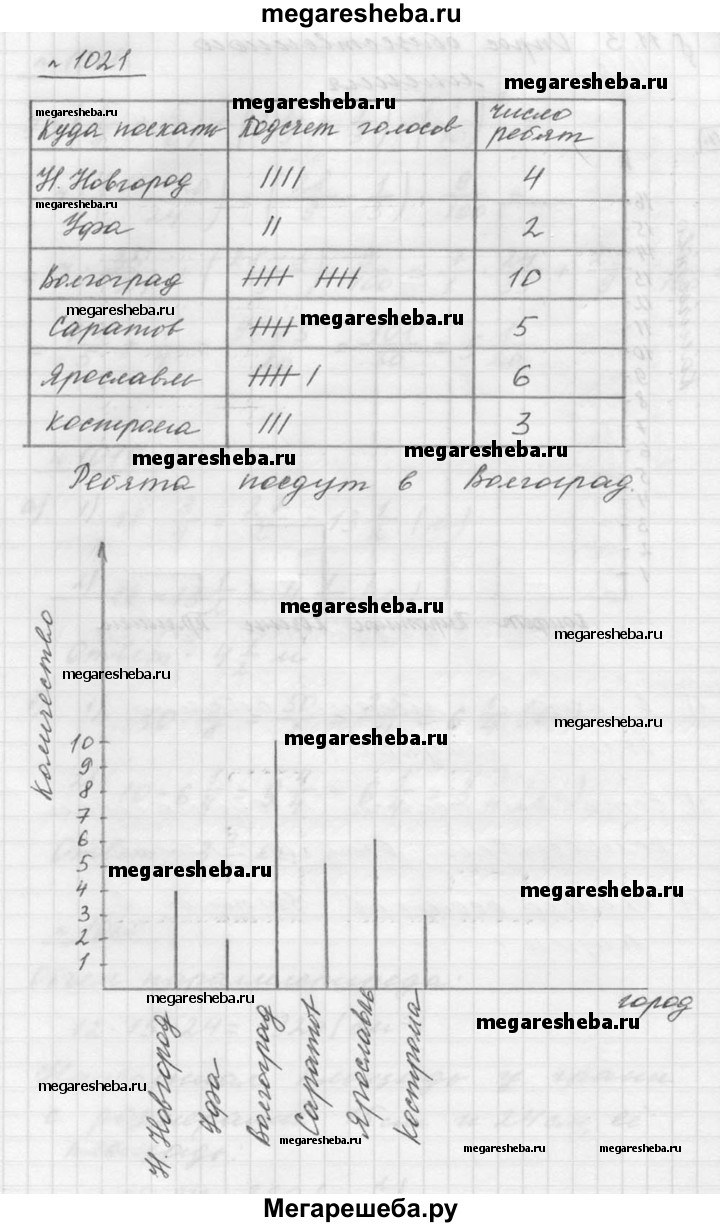 megaresheba.ru
№ 1021
megaresheba.ru
megaresheba.ru megaresheba.ru
Куда поехать Подсчет голосов число ребят
Н. Новгород |||| 4
megaresheba.ru
Уфа || 2
Волгоград 10
megaresheba.ru
Саратов 5
megaresheba.ru
Ярославль 6
Кострома ||| 3
megaresheba.ru megaresheba.ru
Ребята поедут в Волгоград.
megaresheba.ru
megaresheba.ru
megaresheba.ru
Количество
megaresheba.ru
megaresheba.ru
10
9
8
7
6
5
megaresheba.ru
4
megaresheba.ru
3
2
1
megaresheba.ru
город
megaresheba.ru
Н. Новгород
Уфа
Волгоград
Саратов
Ярославль
Кострома
megaresheba.ru
megaresheba.ru
megaresheba.ru megaresheba.ru
Мегарешеба.ру